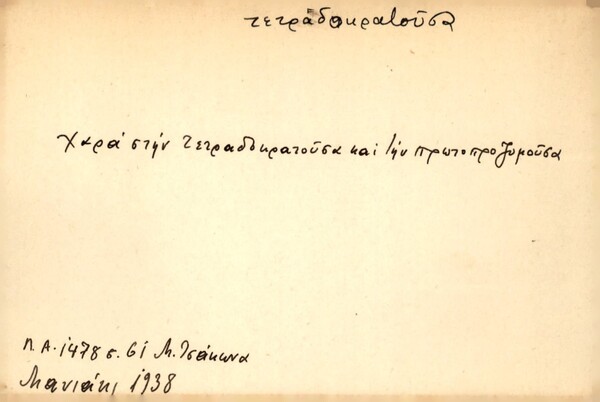 τετραδοκρατοῦσα
Χαρά στήν τετραδοκρατοῦσα καί τήν πρωτοπροζυμοῦσα
Λ.Α. 1478 σ. 61 Μ. Τσάκωνα
Μανιάκι, 1938